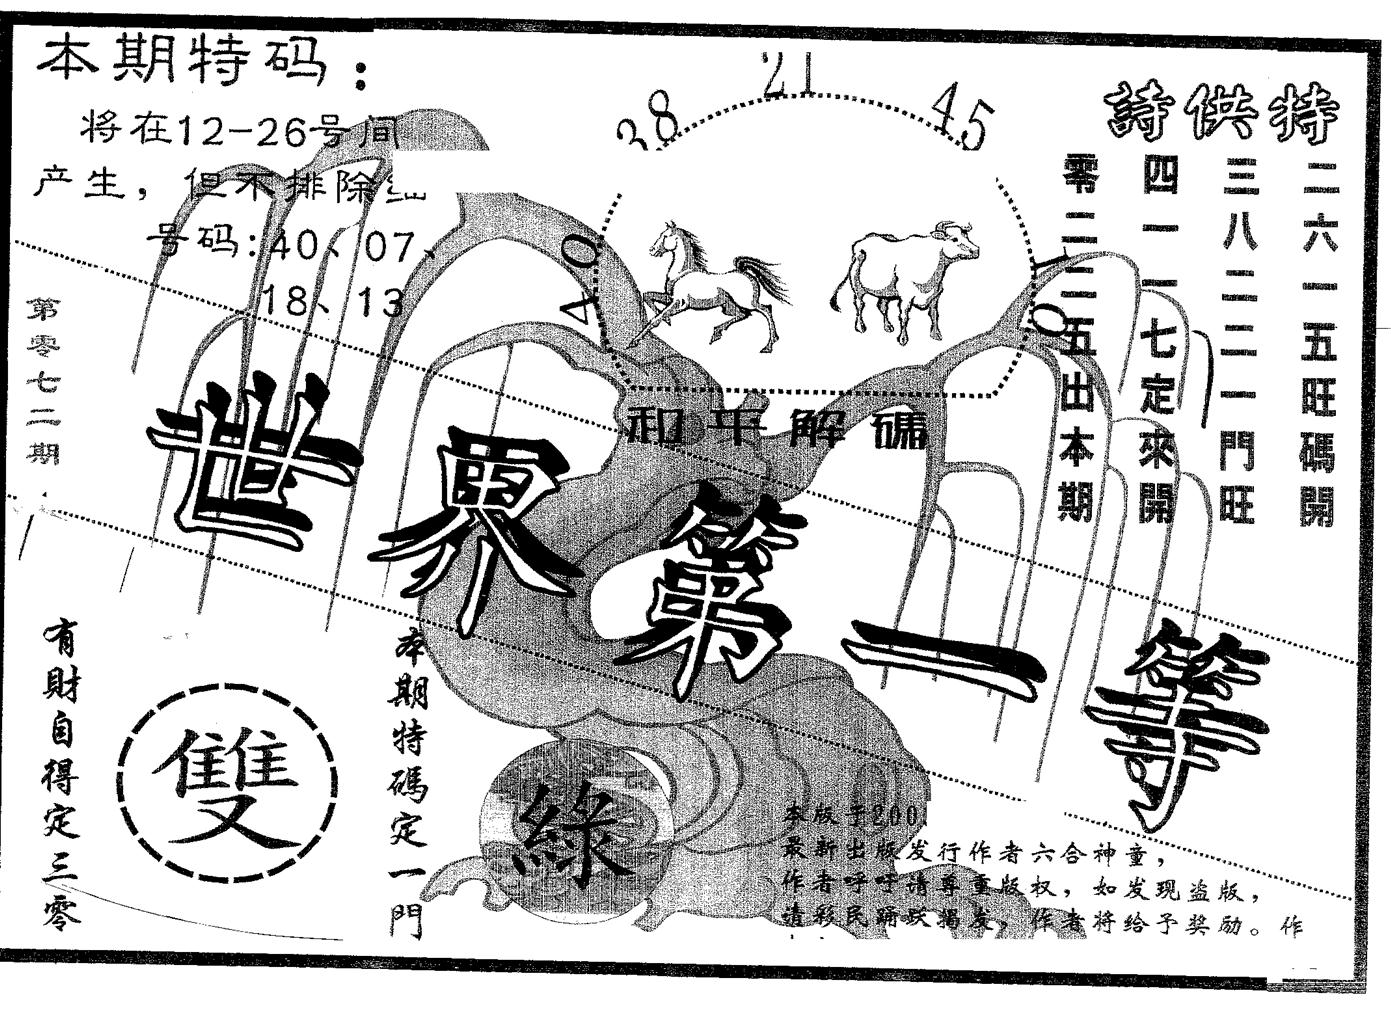 本期特码：
将在12-26号间
产生，但不排除
号码:40、07、
18、13
第零七二期
38
21
45
40
10
和平解碼
特供詩
二六一五旺碼開
三八二二一門旺
四一一七定來開
零二二五出本期
世界第一等
有財自得定三零
雙
本期特碼定一門
綠
本版于200
最新出版发行作者六合神童，
作者呼吁请尊重版权，如发现盗版，
请彩民踊跃揭发，作者将给予奖励。作